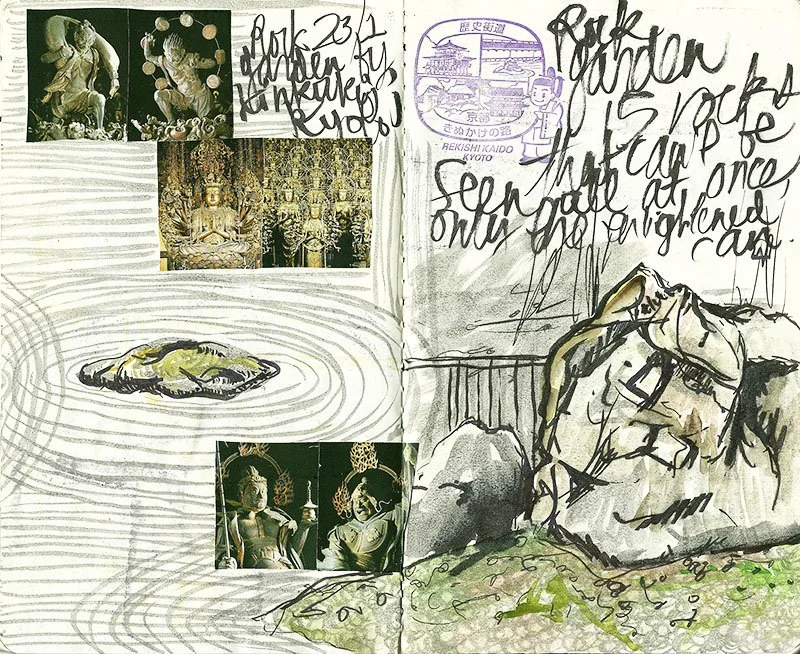 Rock 23/1
garden
Kyoto
歴史街道
京都
きぬかけの路
REKISHI KAIDO
KYOTO
Rock
garden
15 rocks
that can't be
seen all at once,
only the enlightened
can.